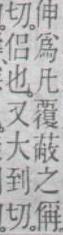 伸爲凡覆蔽之偁
切侣也又大到切